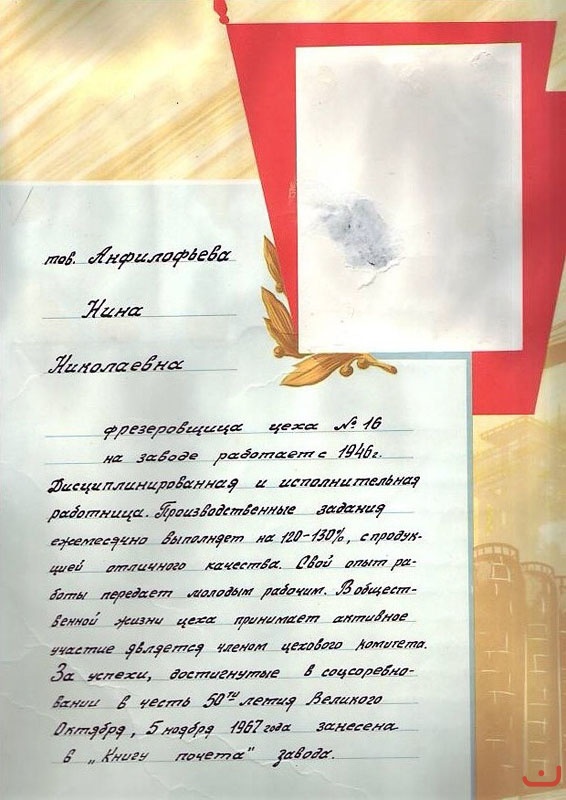 тов. Анфилофьева
Нина
Николаевна
фрезеровщица цеха № 16
на заводе работает с 1946г.
Дисциплинированная и исполнительная
работница. Производственные задания
ежемесячно выполняет на 120-130%, с продук-
цией отличного качества. Свой опыт ра-
боты передает молодым рабочим. В общест-
венной жизни цеха принимает активное
участие является членом цехового комитета.
За успехи, достигнутые в соцсоревно-
вании в честь 50ти летия Великого
Октября, 5 ноября 1967 года занесена
в „Книгу почета" завода.